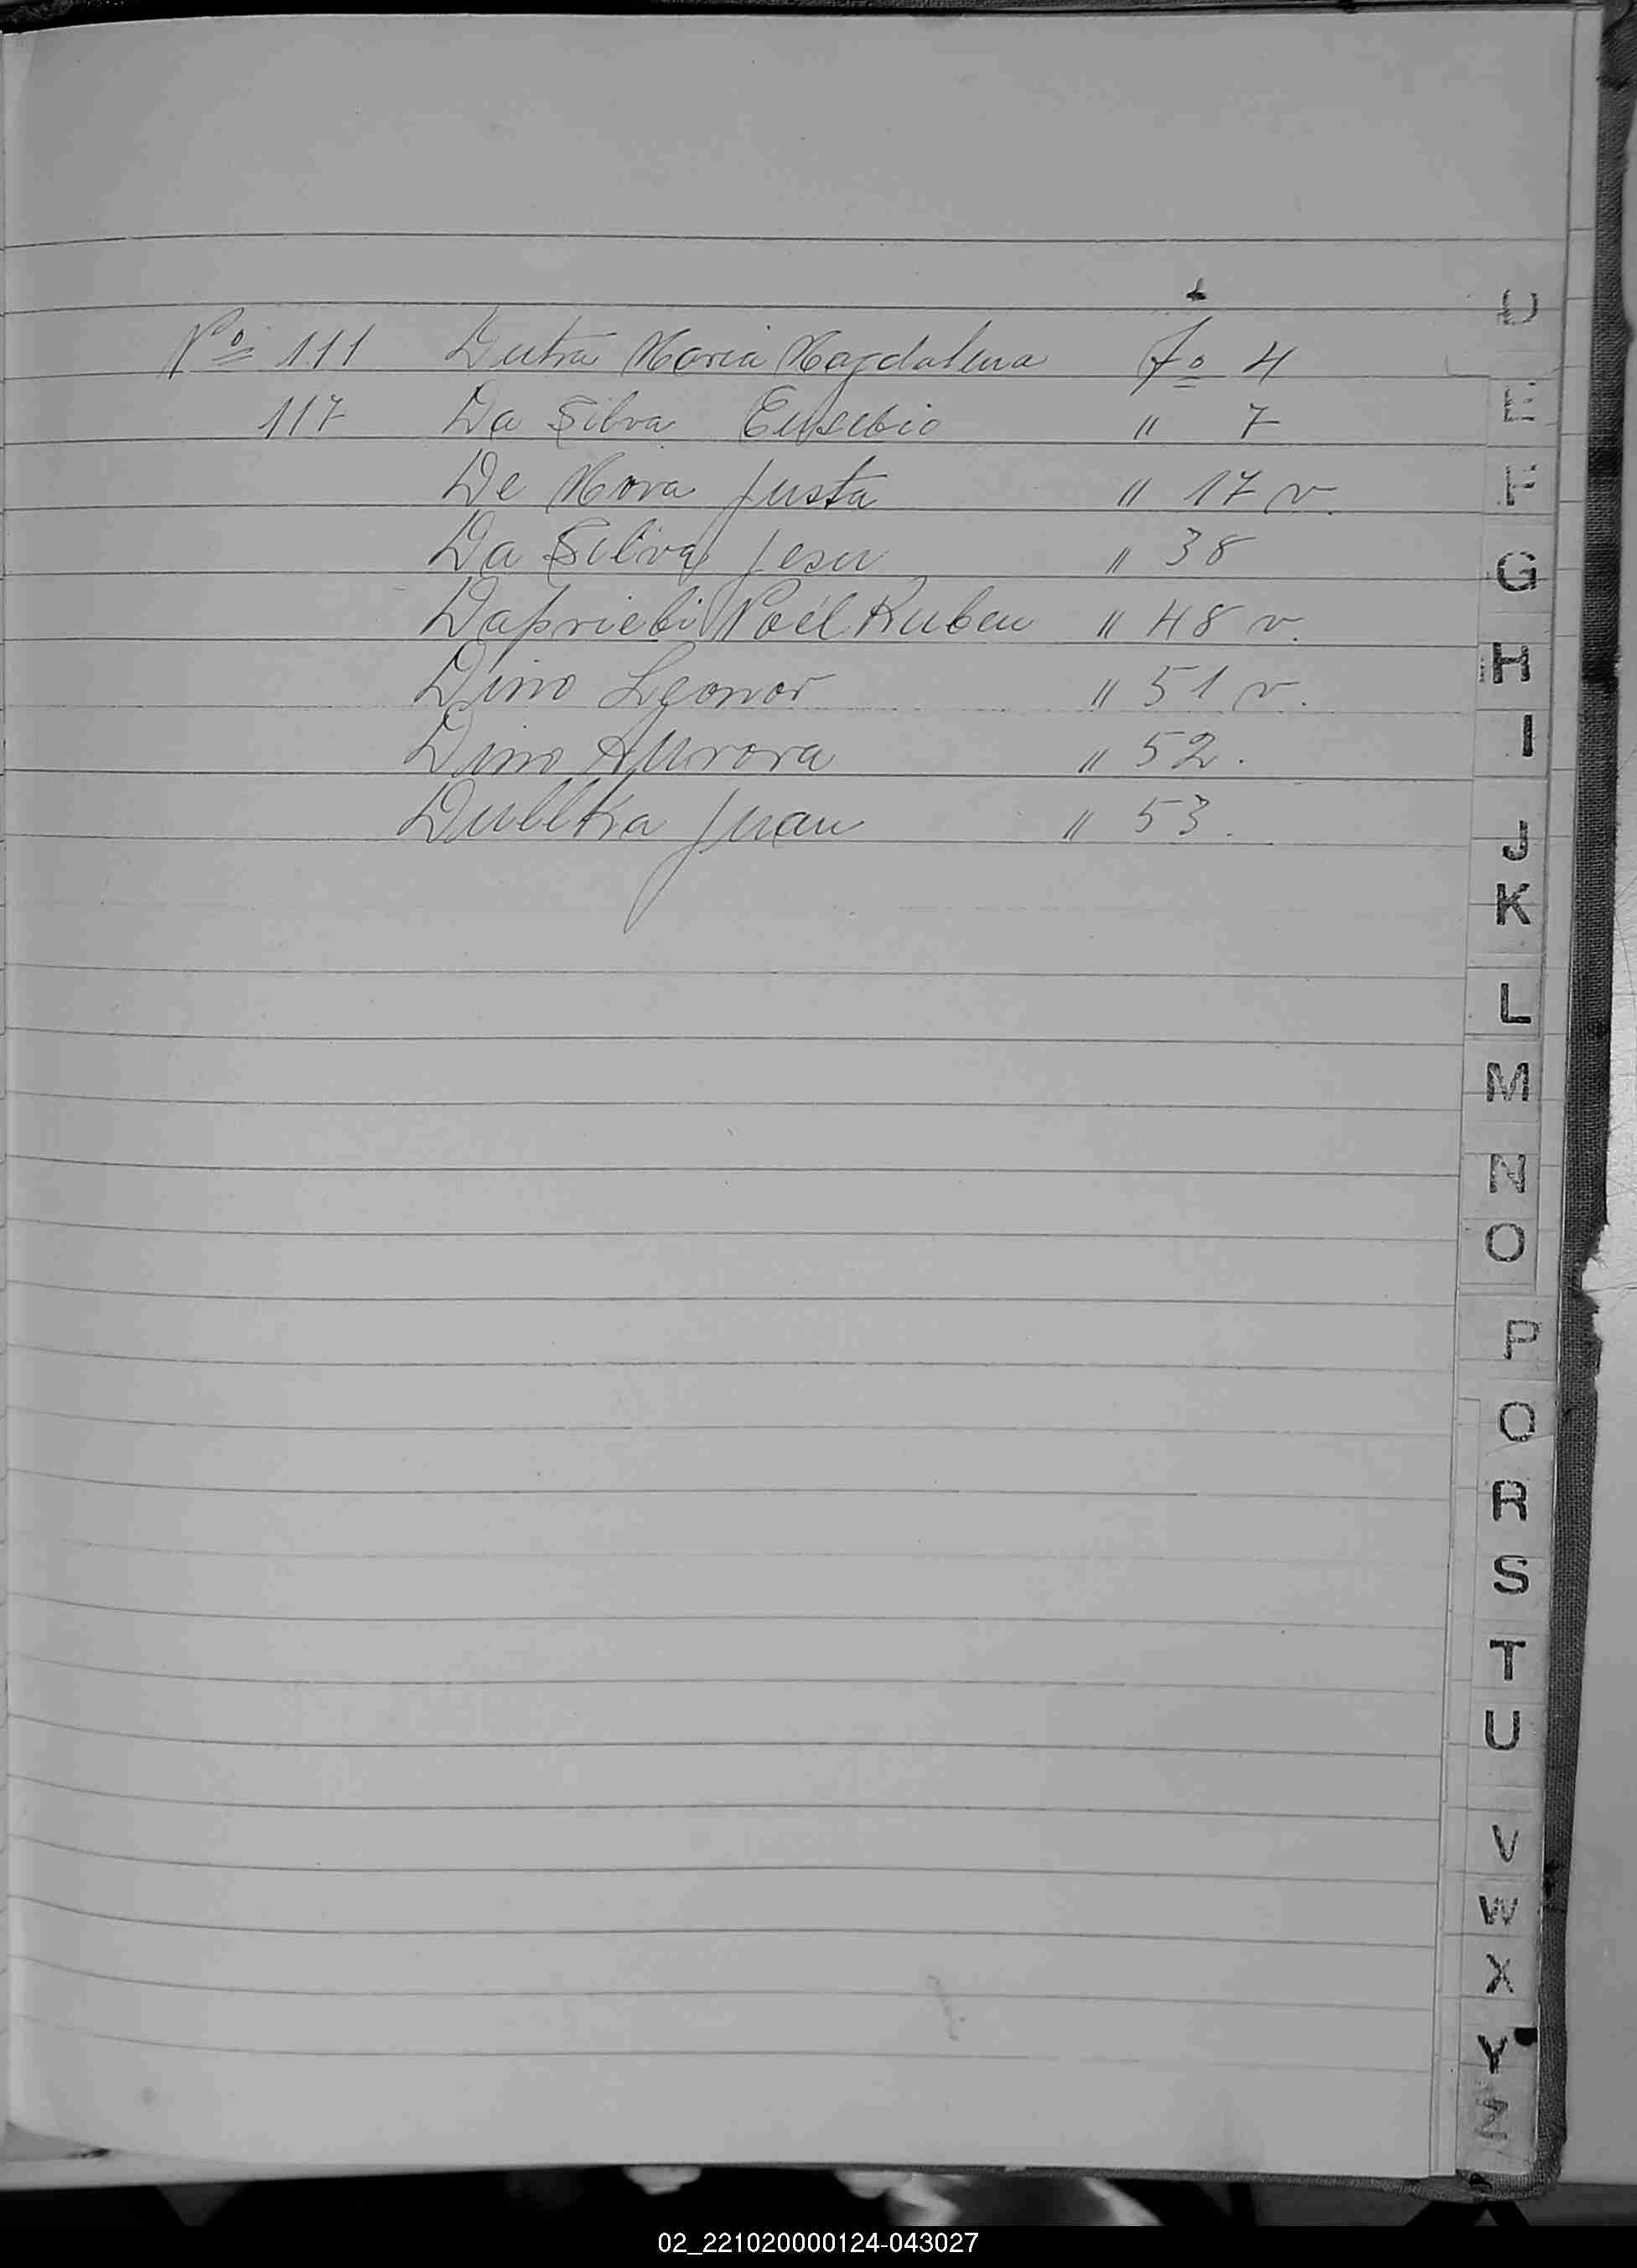 Nº 111 Dutra Maria Magdalena fº 4
117 Da Silva Eusebio " 7
De Mora Justa " 17 v.
Da Silva Jesu " 38
Daprielbi Noél Ruben " 48 v.
Dino Leonor " 51 v.
Dino Aurora " 52.
Dullka Juan " 53.
D
E
F
G
H
I
J
K
L
M
N
O
P
Q
R
S
T
U
V
W
X
Y
Z
02_221020000124-043027